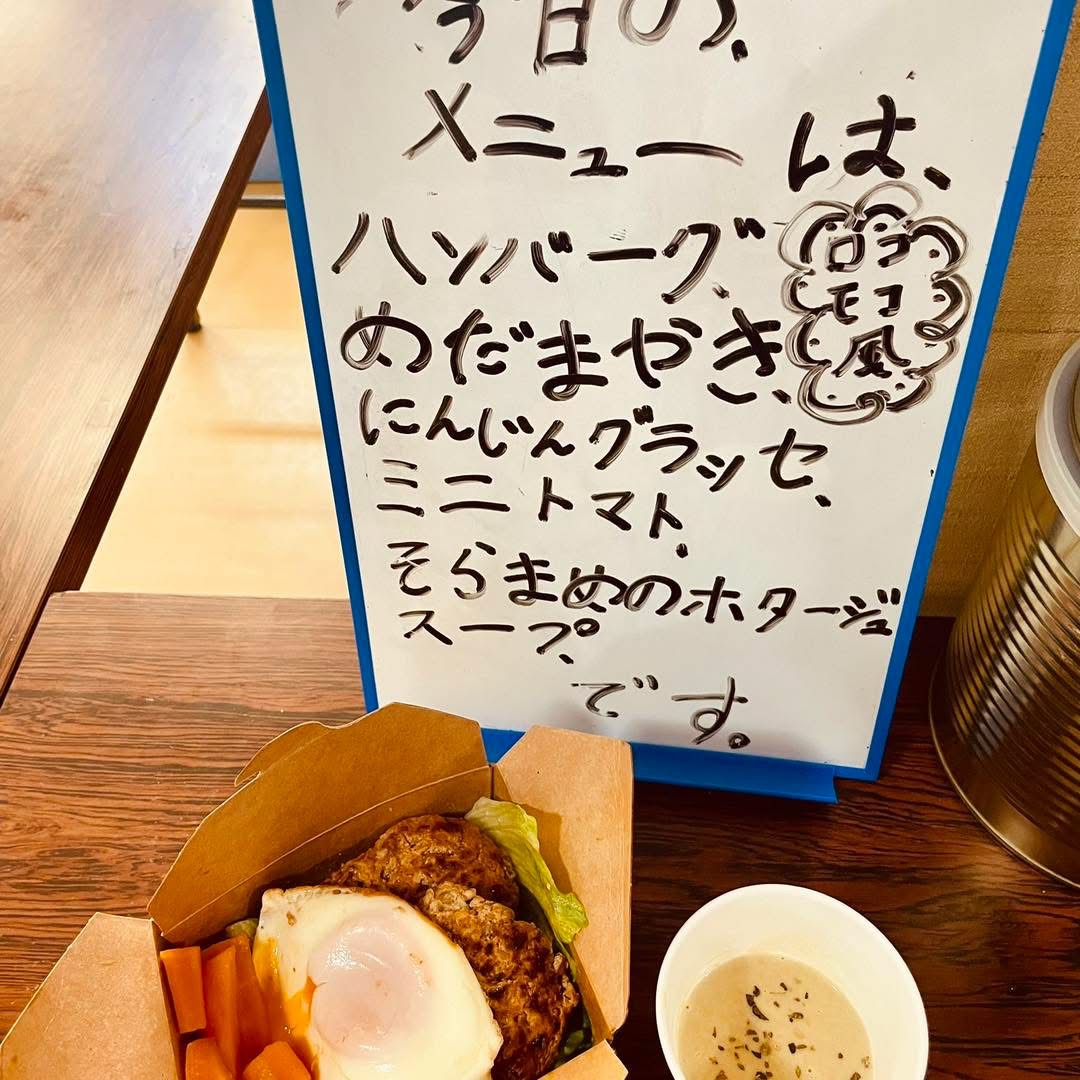 今日の、
メニューは、
ハンバーグ、
めだまやき、
ロコ
モコ
風
にんじんグラッセ、
ミニトマト、
そらまめのポタージュ
スープ、
です。